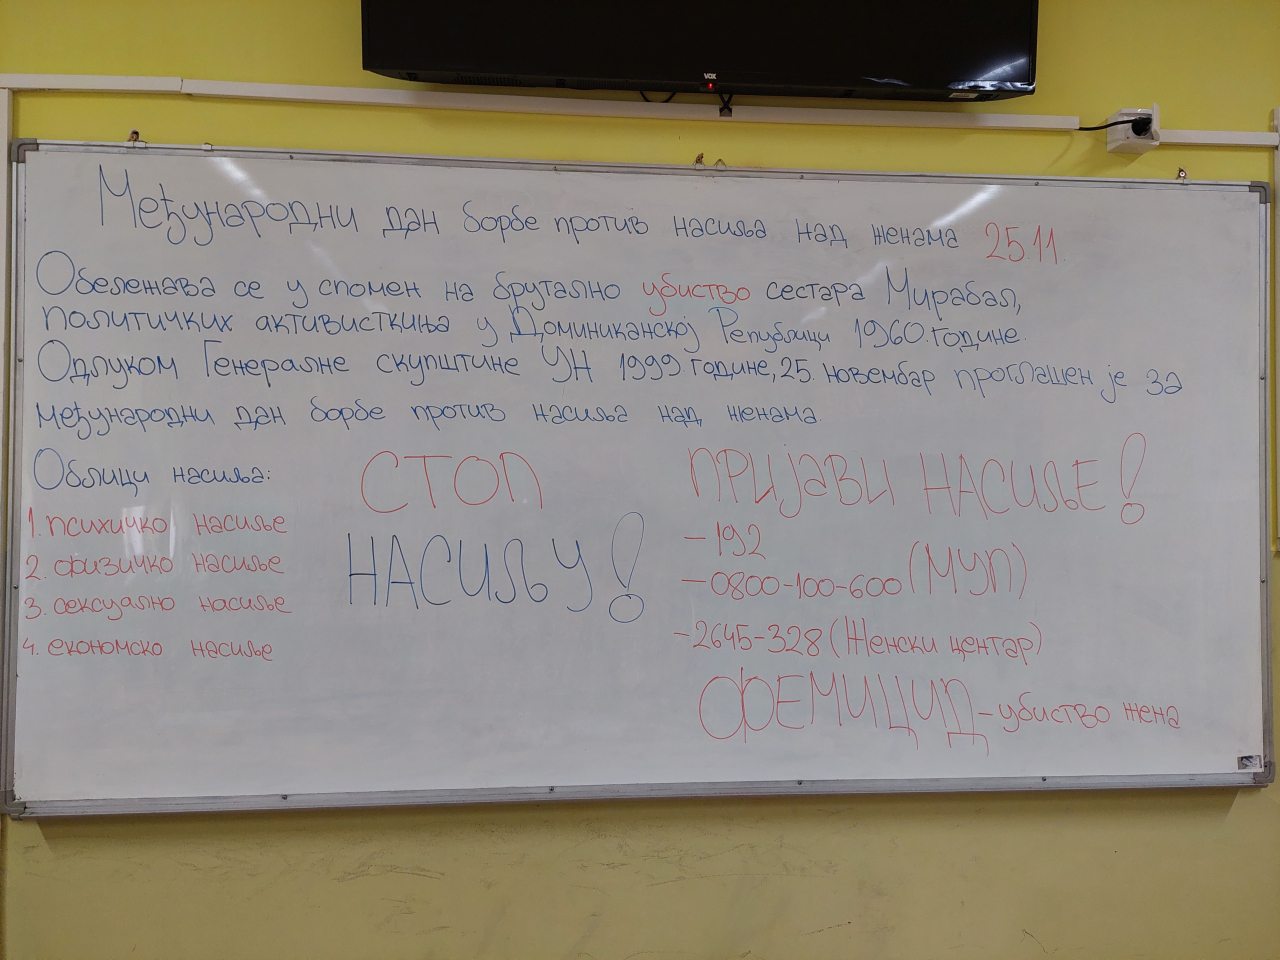 VOX
Међународни дан борбе против насиља над женама 25.11.
Обележава се у спомен на брутално убиство сестара Мирабал,
политичких активисткиња у Доминиканској Републици 1960. године.
Одлуком Генералне скупштине УН 1999 године, 25. новембар проглашен је за
међународни дан борбе против насиља над женама
Облици насиља:
1. психичко насиље
2. физичко насиље
3. сексуално насиље
4. економско насиље
СТОП
НАСИЉУ!
ПРИЈАВИ НАСИЉЕ!
-192
-0800-100-600 (МУП)
-2645-328 (Женски центар)
ФЕМИЦИД - убиство жена